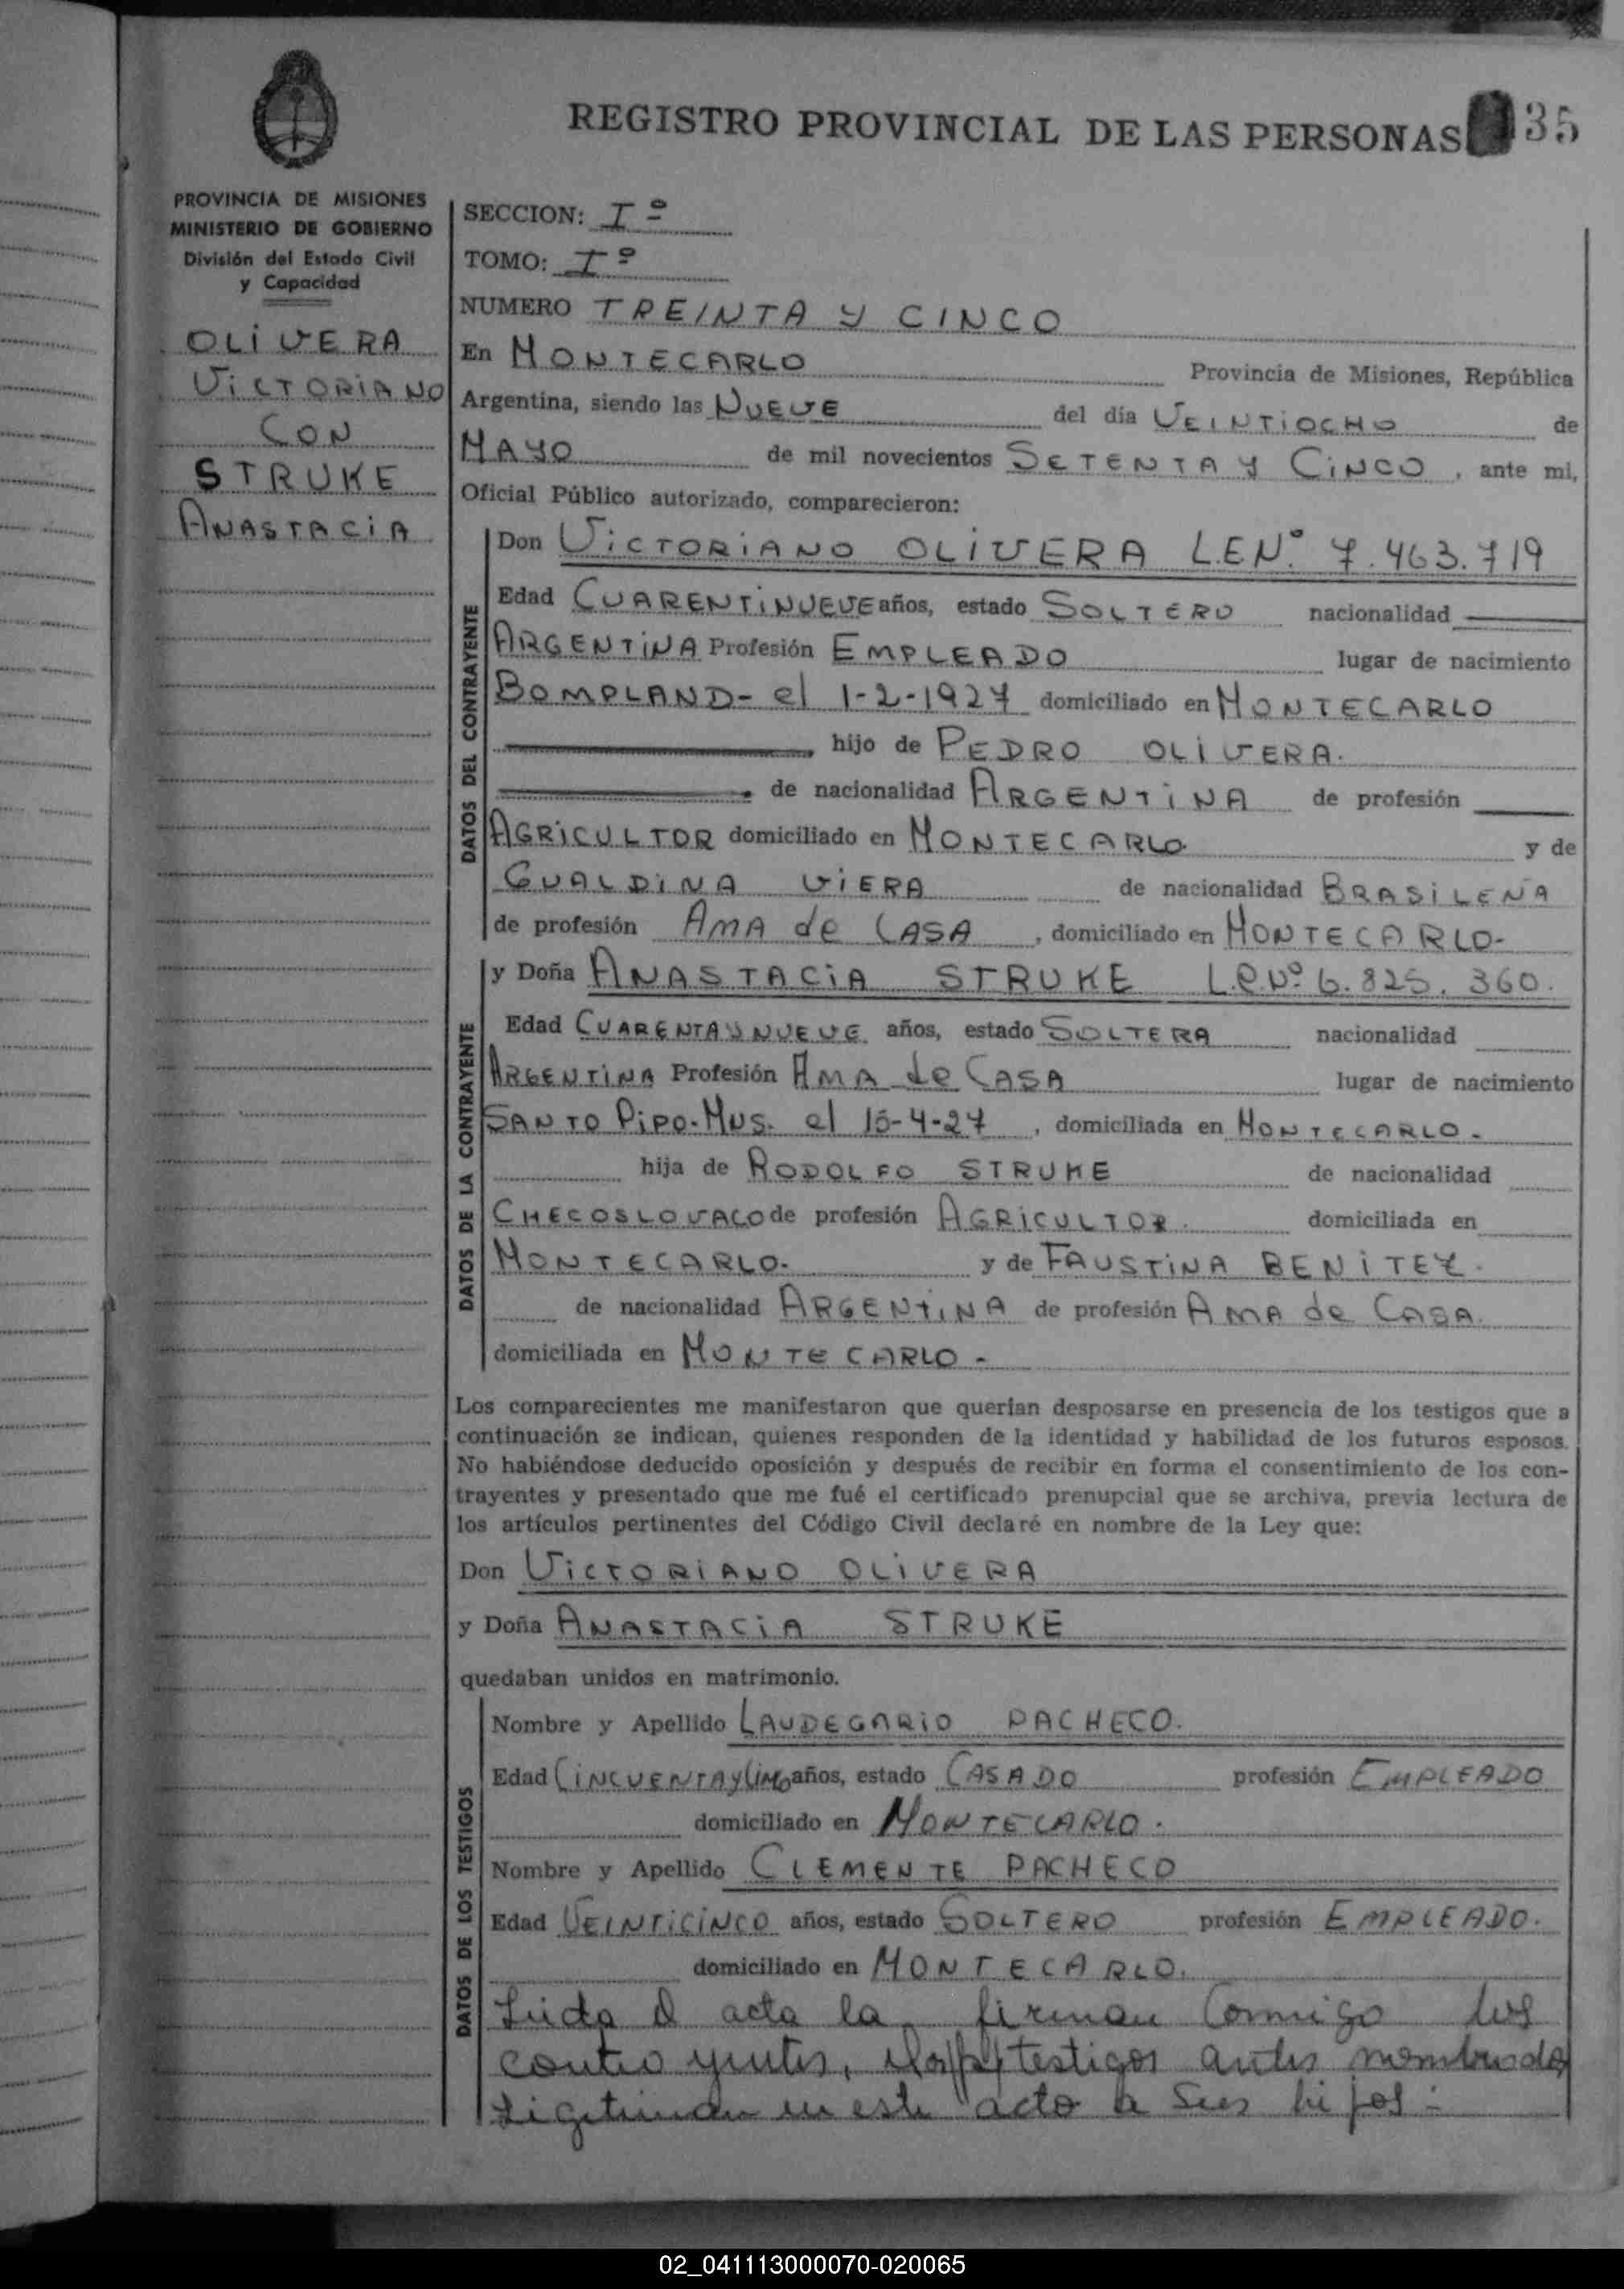 REGISTRO PROVINCIAL DE LAS PERSONAS 35
PROVINCIA DE MISIONES
MINISTERIO DE GOBIERNO
División del Estado Civil
y Capacidad
OLIVERA
VICTORIANO
CON
STRUKE
ANASTACIA
SECCION: Iº
TOMO: Iº
NUMERO TREINTA Y CINCO
En MONTECARLO Provincia de Misiones, República
Argentina, siendo las NUEVE del día VEINTIOCHO de
MAYO de mil novecientos SETENTA Y CINCO, ante mi,
Oficial Público autorizado, comparecieron:
DATOS DEL CONTRAYENTE
Don VICTORIANO OLIVERA L.E.Nº 7.463.719
Edad CUARENTINUEVE años, estado SOLTERO nacionalidad
ARGENTINA Profesión EMPLEADO lugar de nacimiento
BOMPLAND- el 1-2-1927 domiciliado en MONTECARLO
, hijo de PEDRO OLIVERA.
de nacionalidad ARGENTINA de profesión
AGRICULTOR domiciliado en MONTECARLO y de
GUALDINA VIERA de nacionalidad BRASILEÑA
de profesión AMA de CASA, domiciliado en MONTECARLO-
DATOS DE LA CONTRAYENTE
y Doña ANASTACIA STRUKE L.C.Nº 6.825.360.
Edad CUARENTAYNUEVE años, estado SOLTERA nacionalidad
ARGENTINA Profesión AMA de CASA lugar de nacimiento
SANTO PIPO-MNS. el 15-4-27, domiciliada en MONTECARLO-
hija de RODOLFO STRUKE de nacionalidad
CHECOSLOVACO de profesión AGRICULTOR. domiciliada en
MONTECARLO. y de FAUSTINA BENITEZ.
de nacionalidad ARGENTINA de profesión AMA de CASA.
domiciliada en MONTECARLO-
Los comparecientes me manifestaron que querían desposarse en presencia de los testigos que a
continuación se indican, quienes responden de la identidad y habilidad de los futuros esposos.
No habiéndose deducido oposición y después de recibir en forma el consentimiento de los con-
trayentes y presentado que me fué el certificado prenupcial que se archiva, previa lectura de
los artículos pertinentes del Código Civil declaré en nombre de la Ley que:
Don VICTORIANO OLIVERA
y Doña ANASTACIA STRUKE
quedaban unidos en matrimonio.
DATOS DE LOS TESTIGOS
Nombre y Apellido LAUDEGARIO PACHECO.
Edad CINCUENTAYUNO años, estado CASADO profesión EMPLEADO
domiciliado en MONTECARLO.
Nombre y Apellido CLEMENTE PACHECO
Edad VEINTICINCO años, estado SOLTERO profesión EMPLEADO.
domiciliado en MONTECARLO.
Leida el acta la firman conmigo los
contrayentes, testigos antes nombrados
Ligitiman en este acto a sus hijos:
02_041113000070-020065